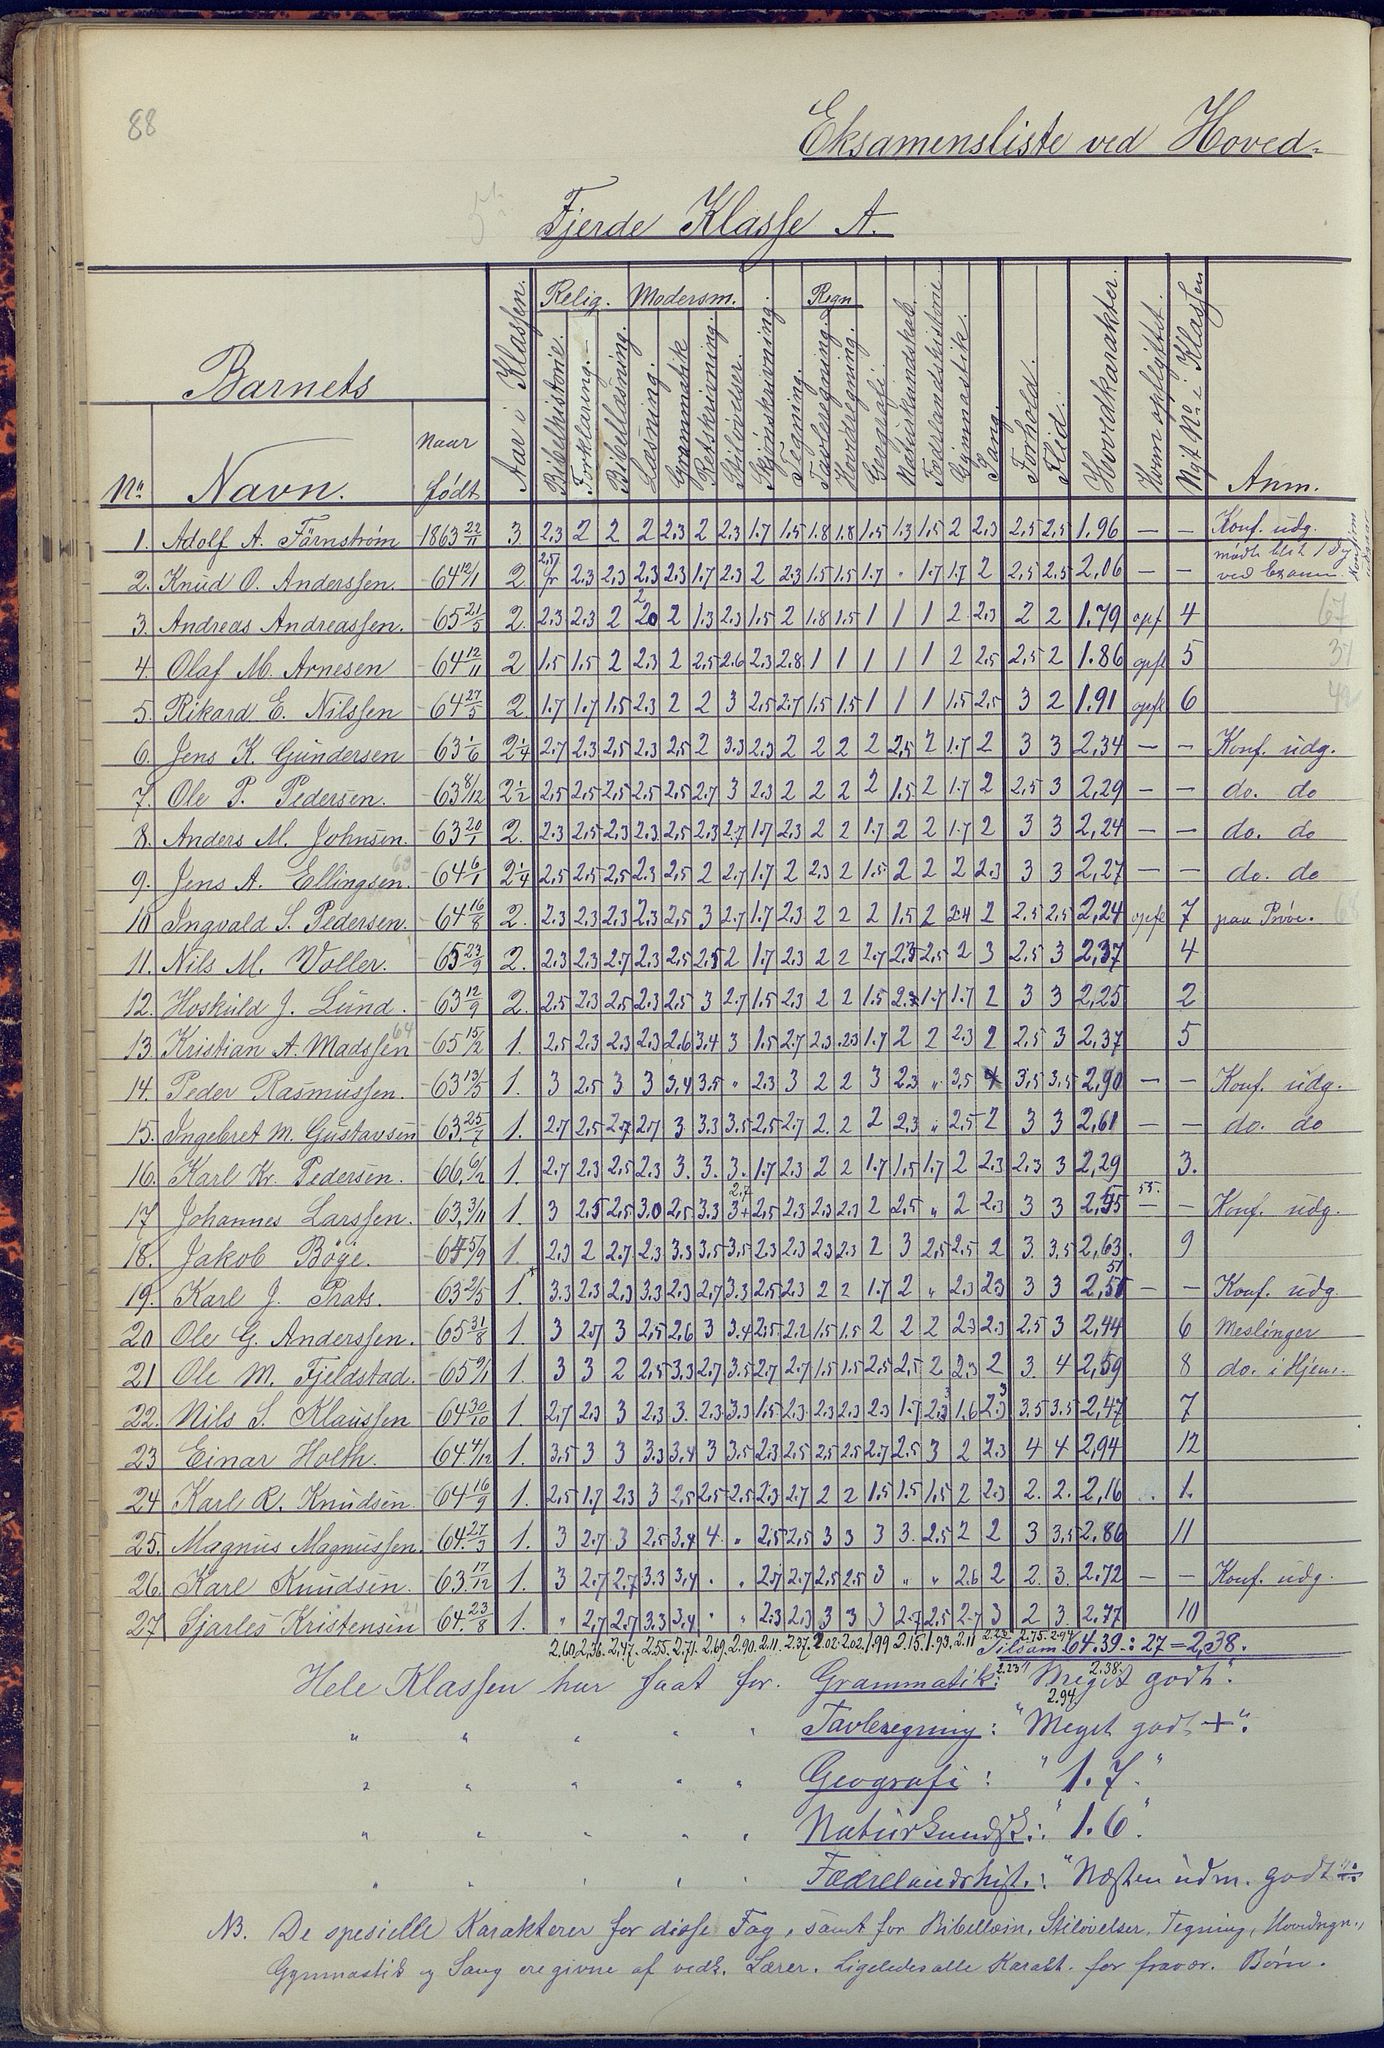 88
Eksamensliste ved Hoved-
Fjerde Klasse A.
Barnets
No. Navn. Naar født Aar i Klassen. Relig. Bibelhistorie. Forklaring. Bibellæsning. Modersm. Læsning. Grammatik Retskrivning. Stiløvelser. Skjønskrivning. Tegning. Regn Tavleregning. Hovedregning. Geografi. Naturkundskab. Fædrelandshistorie. Gymnastik. Sang. Forhold. Flid. Hovedkarakter. Hvem opflyttet. Nyt No. i Klassen Anm.
1. Adolf A. Färnstrøm 1863 22/11 3 2.3 2 2 2 2.3 2 2.3 1.7 1.5 1.8 1.8 1.5 1.3 1.5 2 2.3 2.5 2.5 1.96 — — Konf. udg.
2. Knud O. Anderssen. 64 12/1 2 2.3 2.3 2.3 2.3 1.7 2.3 2 2.3 1.5 1.5 1.7 " 1.7 1.7 2 2.5 2.5 2,06 — — mødte ved Exam.
3. Andreas Andreassen. 65 21/5 2. 2.3 2.3 2 2 2 1.3 2.3 1.5 2 1.8 1.5 1 1 1 2 2.3 2 2 1.79 opf 4 67
4. Olaf M. Arnesen 64 12/11 2 1.5 1.5 2 2.3 2 2.5 2.6 2.3 2.8 1 1 1 1 1 2 2.5 2.5 2 1.86 opfl 5 37
5. Rikard E. Nilssen 64 27/5 2. 1.7 1.7 1.5 2.3 2 2 3 2.5 2.7 1.5 1.5 1 1 1 1.5 2.5 3 2 1.91 opfl 6
6. Jens K. Gundersen 63 1/6 2 1/4 2.7 2.3 2.5 2.3 2.5 2 3.3 2.3 2 2 2 2 2.5 2 1.7 2 3 3 2,34 — — Konf. udg.
7. Ole P. Pedersen. 63 8/12 2 1/2 2.5 2.5 2.5 2.5 2.5 2.7 3 2.3 2 2 2 2 1.5 2 1.7 2 2.5 3 2,29 — — do. do
8. Anders M. Johnsen. 63 20/1 2. 2.3 2.5 2.3 2.3 2.5 2.3 2.7 1.7 2.3 2 2 1.7 2 2 1.7 2 3 3 2,24 — — do. do
9. Jens A. Ellingsen. 64 6/1 2 1/4 2.5 2.5 2.5 2.3 2.5 2 2.7 1.7 2 2.3 2 1.5 2 2 2 2.3 3 3 2,27 — — do. do
10 Ingvald S. Pedersen. 64 16/8 2. 2.3 2.3 2.3 2.3 2.5 3 2.7 1.7 2.3 2 2 2 1.5 2 2.4 2 2.5 2.5 2,24 opfl 7 paa Prøve. 68
11. Nils M. Voller. 65 23/9 2. 2.3 2.3 2.7 2.3 2.5 2.5 2 1.7 2.3 2 2 2.7 2.3 2.5 2 3 2.5 3 2,37 4
12. Hoskuld J. Lund. 63 12/9 2. 2.5 2.3 2.5 2.3 2.5 3 2.7 1.5 2.3 2 2 1.5 2.3 1.7 1.7 2 3 3 2,25 2
13. Kristian A. Madssen 65 15/2 1. 2.5 2.3 2.3 2.3 2.6 3.4 3 1.5 2.7 2.3 2.3 1.7 2 2 2.3 2 2.5 3 2,37 5
14. Peder Rasmussen. 63 13/5 1. 3 2.5 3 3 3.4 3.5 " 2.3 3 2 2 3 2.3 " 3.5 4 3.5 3.5 2,90 — — Konf. udg.
15. Ingebret M. Gustavsen 63 25/7 1. 2.7 2.5 2.7 2.7 3 3.3 3.5 2.5 2.7 2. 2 2 2.3 " 2.5 2 3 3 2,61 — — do. do
16. Karl Kr. Pedersen. 66 6/2 1. 2.7 2.3 2.5 2.3 3. 3. 3. 1.7 2.3 2 2 1.7 1.5 1.7 2 2.3 2.3 3 2,29 3.
17 Johannes Larssen. 63 3/11 1. 3 2.5 2.5 3.0 2.5 3.3 3+ 2.5 2.3 2.3 2.3 2 2.5 " 2 2.3 3 3 2,55 — — Konf. udg.
18. Jakob Böge. 64 5/9 1. 2.3 2 2.7 2.3 3.3 3.5 3.5 2.3 2.3 2.3 2.3 2 3 2.5 2.5 2 3. 3.5 2,63. 9
19. Karl J. Prats. 63 21/5 1. 3.3 2.3 2.3 3.3 2.3 2.7 3.3 2.5 2.3 2 2 1.7 2 " 2.3 2.3 3 3 2,51 — — Konf. udg
20 Ole G. Anderssen. 65 31/8 1. 3 2.7 3 2.5 2.6 3 3.4 2.5 2.2 1.5 1.5 2 2 2 2.3 2.3 2.5 3 2,44 6 Meslinger
21 Ole M. Fjeldstad. 65 9/1 1. 3 3 2 2.5 3.3 2.7 3.5 2.7 2.7 1.5 1.5 2.5 2.5 2 2.3 2 3. 4 2,59 8 do. i Hjem.
22. Nils S. Klaussen 64 30/10 1. 2.7 2.3 3 2.3 3. 2.3 3.3 1.5 2.3 2.3 2.3 2.3 1.7 2.3 1.6 2.3 3.5 3.5 2,47 7
23 Einar Holth. 64 4/12 1. 3.5 3 3 3.3 3.4 3 3.5 2.3 2.5 2.5 2.5 2.7 2.5 3 2 2.3 4 4 2,94 12
24 Karl R. Knudsen. 64 16/9 1. 2.5 1.7 2.3 3 2.5 2.5 2.5 2.3 2.7 2 2 1.5 1.5 1.5 2 2.3 2. 2. 2,16 1.
25. Magnus Magnussen. 64. 27/3 1. 3 2.7 3 2.5 3.4 4. " 2.5 2.5 3 3 3 3. 2.5 2 2 3 3.5 2,86 11
26. Karl Knudsen. 63. 17/12 1. 3 2.7 2.7 3.3 3.4 " " 2.7 2.7 2.5 2.5 3 " " 2.6 2 2. 3. 2.72 — — Konf. udg.
27 Sjarles Kristensen 64. 23/8 1. " 2.7 2.7 3.3 3.4 " " 2.3 2.3 3 3 3 2.7 2.5 2.7 3 2 3. 2.77 10
2.60. 2.36. 2.47. 2.55. 2.71. 2.69. 2.90. 2.11. 2.37. 2.02. 2.02. 1.99 2.15. 1.93. 2.11 2.23. 2.75. 2.94
Tilsam 64.39.: 27 = 2,38.
Hele Klassen har faat for. Grammatik: "Meget godt".
" " " " " Tavleregning: "Meget godt +".
" " " " " Geografi: "1.7."
" " " " " Naturkundsk.: "1.6".
" " " " " Fædrelandshist.: "Næsten udm. godt ÷".
NB. De specielle Karakterer for disse Fag, samt for Bibellæsn, Stiløvelser, Tegning, Hovedregn.,
Gymnastik og Sang ere givne af vedk. Lærer. Ligeledes alle Karakt. for fravær. Børn.